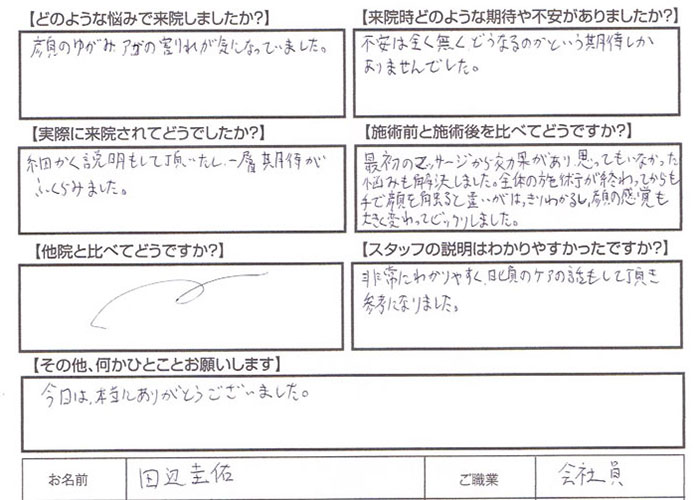 【どのような悩みで来院しましたか?】
顔のゆがみ アゴの割れが気になっていました。
【来院時どのような期待や不安がありましたか?】
不安は全く無くどうなるのかという期待しか
ありませんでした。
【実際に来院されてどうでしたか?】
細かく説明もして頂いたし、一層期待が
ふくらみました。
【施術前と施術後を比べてどうですか?】
最初のマッサージから効果があり、思ってもいなかった
悩みも解決しました。全体の施術が終わってからも
手で顔を触ると違いがはっきりわかるし、顔の感覚も
大きく変わってビックリしました。
【他院と比べてどうですか?】
【スタッフの説明はわかりやすかったですか?】
非常にわかりやすく、日頃のケアの話もして頂き
参考になりました。
【その他、何かひとことお願いします】
今日は、本当にありがとうございました。
お名前 田辺圭佑
ご職業 会社員